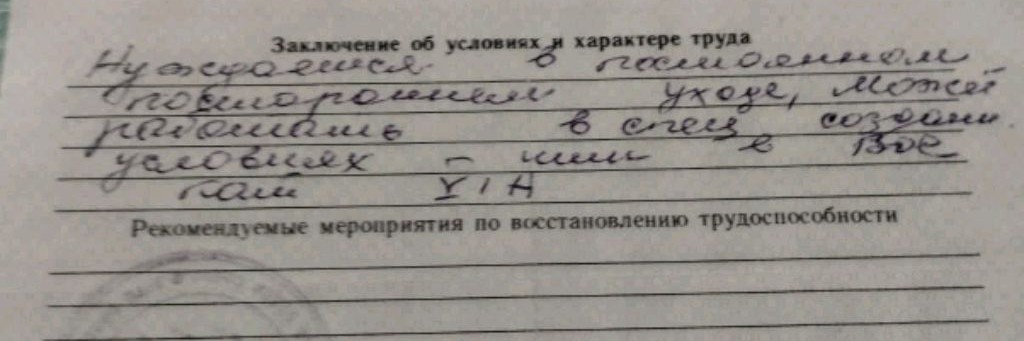 Заключение об условиях и характере труда
Нуждается в постоянном
постороннем уходе, может
работать в спец создан.
условиях - или в
Рекомендуемые мероприятия по восстановлению трудоспособности